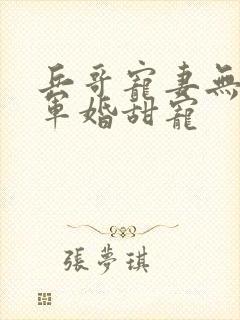 兵哥寵妻無
軍婚甜寵
張夢琪